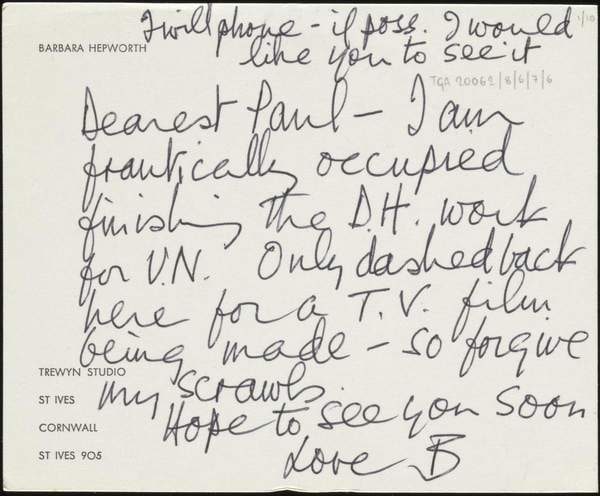 I will phone - if poss. I would
like you to see it
1/10
BARBARA HEPWORTH
TGA 20062/8/6/7/6
Dearest Paul - I am
frantically occupied
finishing the D.H. work
for U.N. Only dashed back
here for a T.V. film
being made - so forgive
my scrawls.
Hope to see you soon
Love B
TREWYN STUDIO
ST IVES
CORNWALL
ST IVES 905